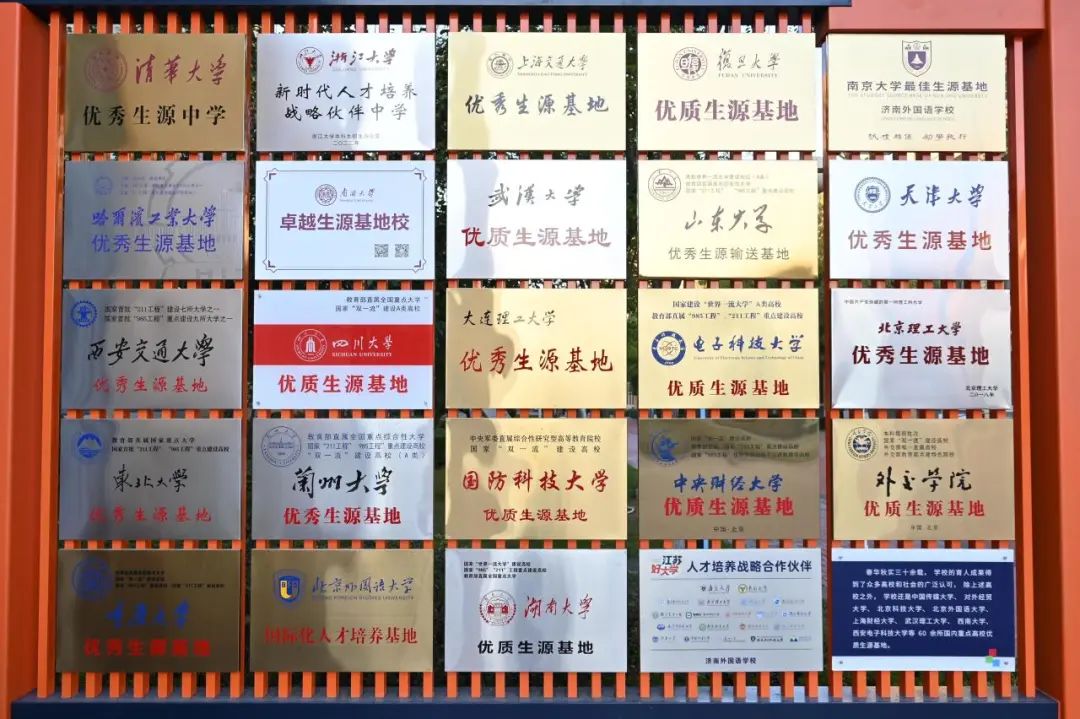 清華大学
优秀生源中学
浙江大学
新时代人才培养
战略伙伴中学
浙江大学本科生招生办公室
二〇二二年
上海交通大学
SHANGHAI JIAO TONG UNIVERSITY
优秀生源基地
復旦大学
FUDAN UNIVERSITY
优质生源基地
南京大学最佳生源基地
济南外国语学校
哈尔濱工業大学
优秀生源基地
南开大学
卓越生源基地校
武漢大学
优质生源基地
教育部直属
山东大学
优秀生源输送基地
天津大学
优秀生源基地
国家首批"211工程"建设七所大学之一
国家首批"985工程"重点建设九所大学之一
西安交通大学
优秀生源基地
教育部直属全国重点大学
国家"双一流"建设A类高校
四川大學
SICHUAN UNIVERSITY
优质生源基地
大连理工大学
优秀生源基地
国家建设"世界一流大学"A类高校
教育部直属"985工程"、"211工程"重点建设高校
电子科技大学
University of Electronic Science and Technology of China
优质生源基地
中国共产党创建的第一所理工科大学
北京理工大学
优秀生源基地
北京理工大学
二〇一八年
教育部直属国家重点大学
国家首批"211工程" "985工程"重点建设高校
東北大學
优秀生源基地
教育部直属全国重点综合性大学
国家"211工程" "985工程"重点建设高校
"双一流"建设高校(A类)
蘭州大學
优秀生源基地
中央军委直属综合性研究型高等教育院校
国家"双一流"建设高校
国防科技大学
优质生源基地
国家"双一流"建设高校
中央财经大学
优质生源基地
中国·北京
本科提前批次
国家"双一流"建设高校
外交部直属高校
外交学院
优质生源基地
中国·北京
重庆大学
优秀生源基地
北京外国语大学
BEIJING FOREIGN STUDIES UNIVERSITY
国际化人才培养基地
国家"世界一流大学"建设高校
国家"985" "211"工程重点建设高校
教育部直属全国重点大学
湖南大学
优质生源基地
江苏
好大学
人才培养战略合作伙伴
济南外国语学校
春华秋实三十余载，学校的育人成果得
到了众多高校和社会的广泛认可，除上述高
校之外，学校还是中国传媒大学、对外经贸
大学、北京科技大学、北京外国语大学、
上海财经大学、武汉理工大学、西南大学、
西安电子科技大学等60余所国内重点高校优
质生源基地。